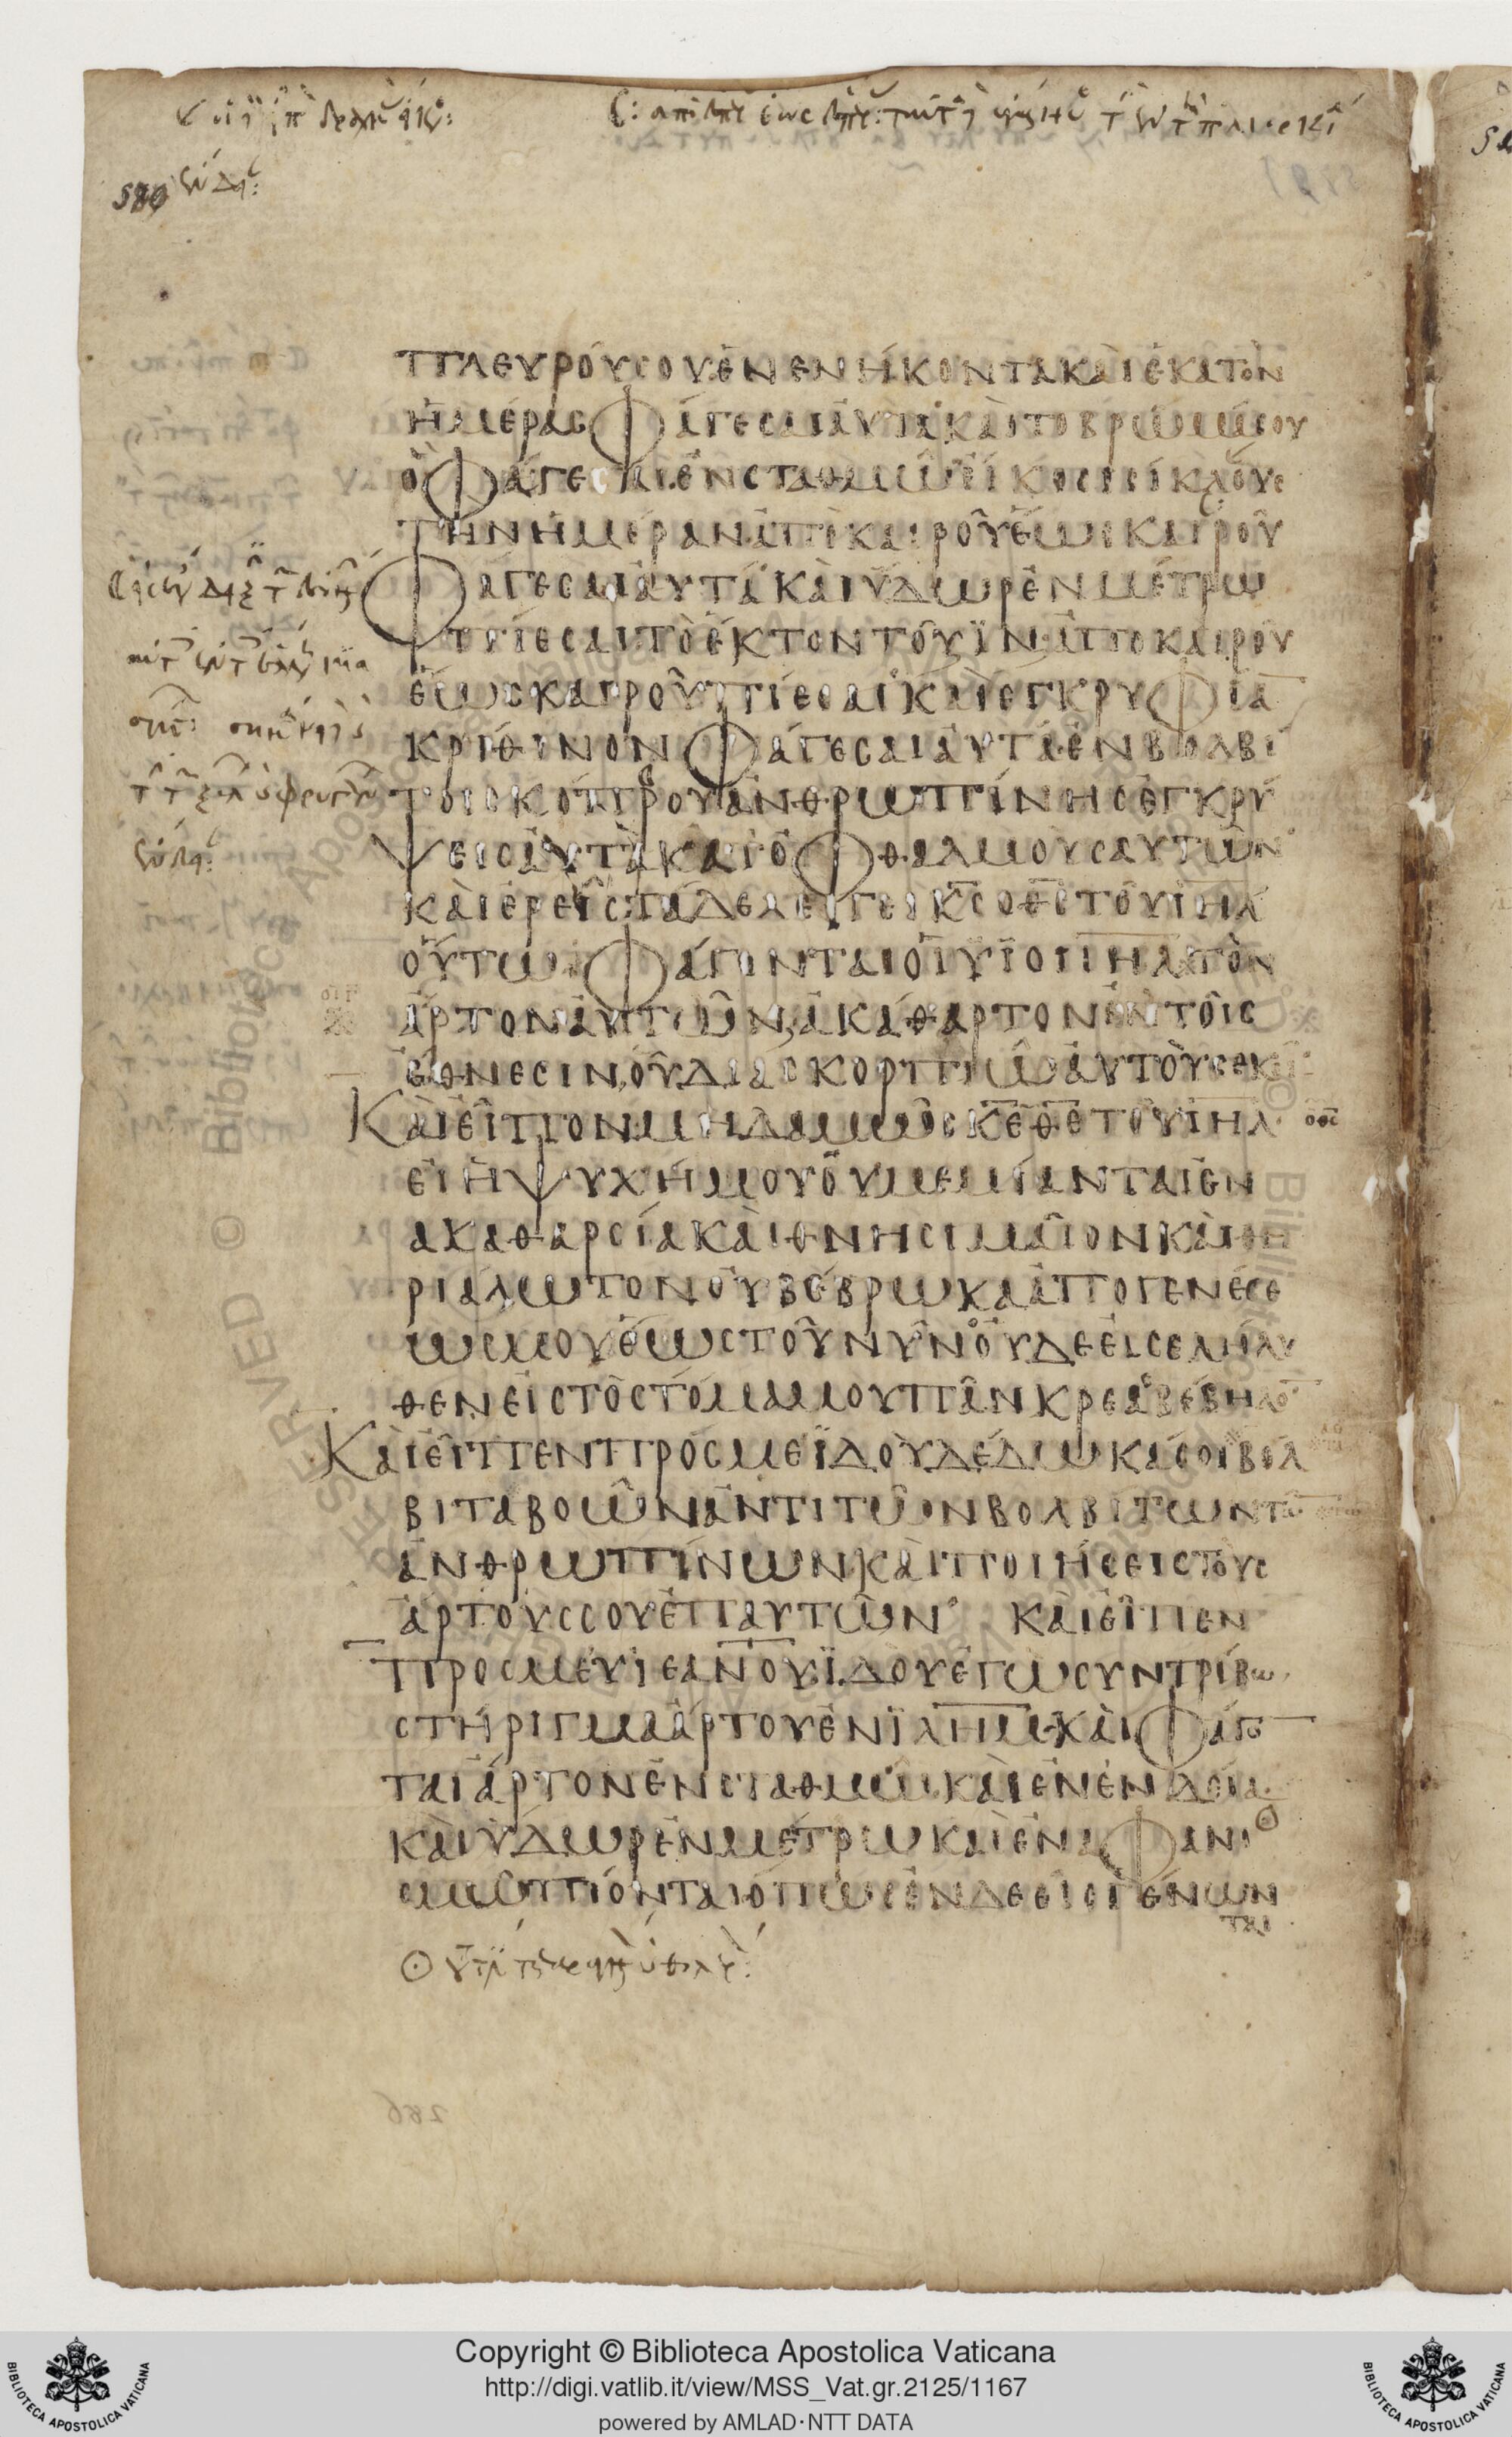 580
ΠΛΕΥΡΟΥΣΟΥΕΝΕΝΗΚΟΝΤΑΚΑΙΕΚΑΤΟΝ
ΗΜΕΡΑΣΦΑΓΕΣΑΙΑΥΤΑΚΑΙΤΟΒΡΩΜΑΣΟΥ
ΟΦΑΓΕΣΑΙΕΝΣΤΑΘΜΩΕΙΚΟΣΙΣΙΚΛΟΥΣ
ΤΗΝΗΜΕΡΑΝΑΠΟΚΑΙΡΟΥΕΩΣΚΑΙΡΟΥ
ΦΑΓΕΣΑΙΑΥΤΑΚΑΙΥΔΩΡΕΝΜΕΤΡΩ
ΠΙΕΣΑΙΤΟΕΚΤΟΝΤΟΥΪΝΑΠΟΚΑΙΡΟΥ
ΕΩΣΚΑΙΡΟΥΠΙΕΣΑΙΚΑΙΕΓΚΡΥΦΙΑ
ΚΡΙΘΙΝΟΝΦΑΓΕΣΑΙΑΥΤΑΕΝΒΟΛΒΙ
ΤΟΙΣΚΟΠΡΟΥΑΝΘΡΩΠΙΝΗΣΕΓΚΡΥ
ΨΕΙΣΑΥΤΑΚΑΤΟΦΘΑΛΜΟΥΣΑΥΤΩΝ
ΚΑΙΕΡΕΙΣΤΑΔΕΛΕΓΕΙΚΣΟΘΣΤΟΥΙΗΛ
ΟΥΤΩΣΦΑΓΟΝΤΑΙΟΙΥΪΟΙΙΗΛΤΟΝ
ΑΡΤΟΝΑΥΤΩΝΑΚΑΘΑΡΤΟΝΕΝΤΟΙΣ
ΕΘΝΕΣΙΝΟΥΔΙΑΣΚΟΡΠΙΩΑΥΤΟΥΣΕΚΕΙ
ΚΑΙΕΙΠΟΝΜΗΔΑΜΩΣΚΕΘΕΤΟΥΙΗΛ
ΕΙΗΨΥΧΗΜΟΥΟΥΜΕΜΙΑΝΤΑΙΕΝ
ΑΚΑΘΑΡΣΙΑΚΑΙΘΝΗΣΙΜΑΙΟΝΚΑΙΘΗ
ΡΙΑΛΩΤΟΝΟΥΒΕΒΡΩΚΑΑΠΟΓΕΝΕΣΕ
ΩΣΜΟΥΕΩΣΤΟΥΝΥΝΟΥΔΕΕΙΣΕΛΗΛΥ
ΘΕΝΕΙΣΤΟΣΤΟΜΑΜΟΥΠΑΝΚΡΕΑΣΒΕΒΗΛΟ
ΚΑΙΕΙΠΕΝΠΡΟΣΜΕΪΔΟΥΔΕΔΩΚΑΣΟΙΒΟΛ
ΒΙΤΑΒΟΩΝΑΝΤΙΤΩΝΒΟΛΒΙΤΩΝΤΩ
ΑΝΘΡΩΠΙΝΩΝΚΑΙΠΟΙΗΣΕΙΣΤΟΥΣ
ΑΡΤΟΥΣΣΟΥΕΠΑΥΤΩΝ ΚΑΙΕΙΠΕΝ
ΠΡΟΣΜΕΥΙΕΑΝΟΥΪΔΟΥΕΓΩΣΥΝΤΡΙΒΩ
ΣΤΗΡΙΓΜΑΑΡΤΟΥΕΝΪΛΗΜΚΑΙΦΑΓΟ
ΤΑΙΑΡΤΟΝΕΝΣΤΑΘΜΩΚΑΙΕΝΕΝΔΕΙΑ
ΚΑΙΥΔΩΡΕΝΜΕΤΡΩΚΑΙΕΝΑΦΑΝΙ
ΣΜΩΠΙΟΝΤΑΙΟΠΩΣΕΝΔΕΕΙΣΓΕΝΩΝ
ΤΑΙ
Copyright © Biblioteca Apostolica Vaticana
http://digi.vatlib.it/view/MSS_Vat.gr.2125/1167
powered by AMLAD·NTT DATA
BIBLIOTECA APOSTOLICA VATICANA
BIBLIOTECA APOSTOLICA VATICANA